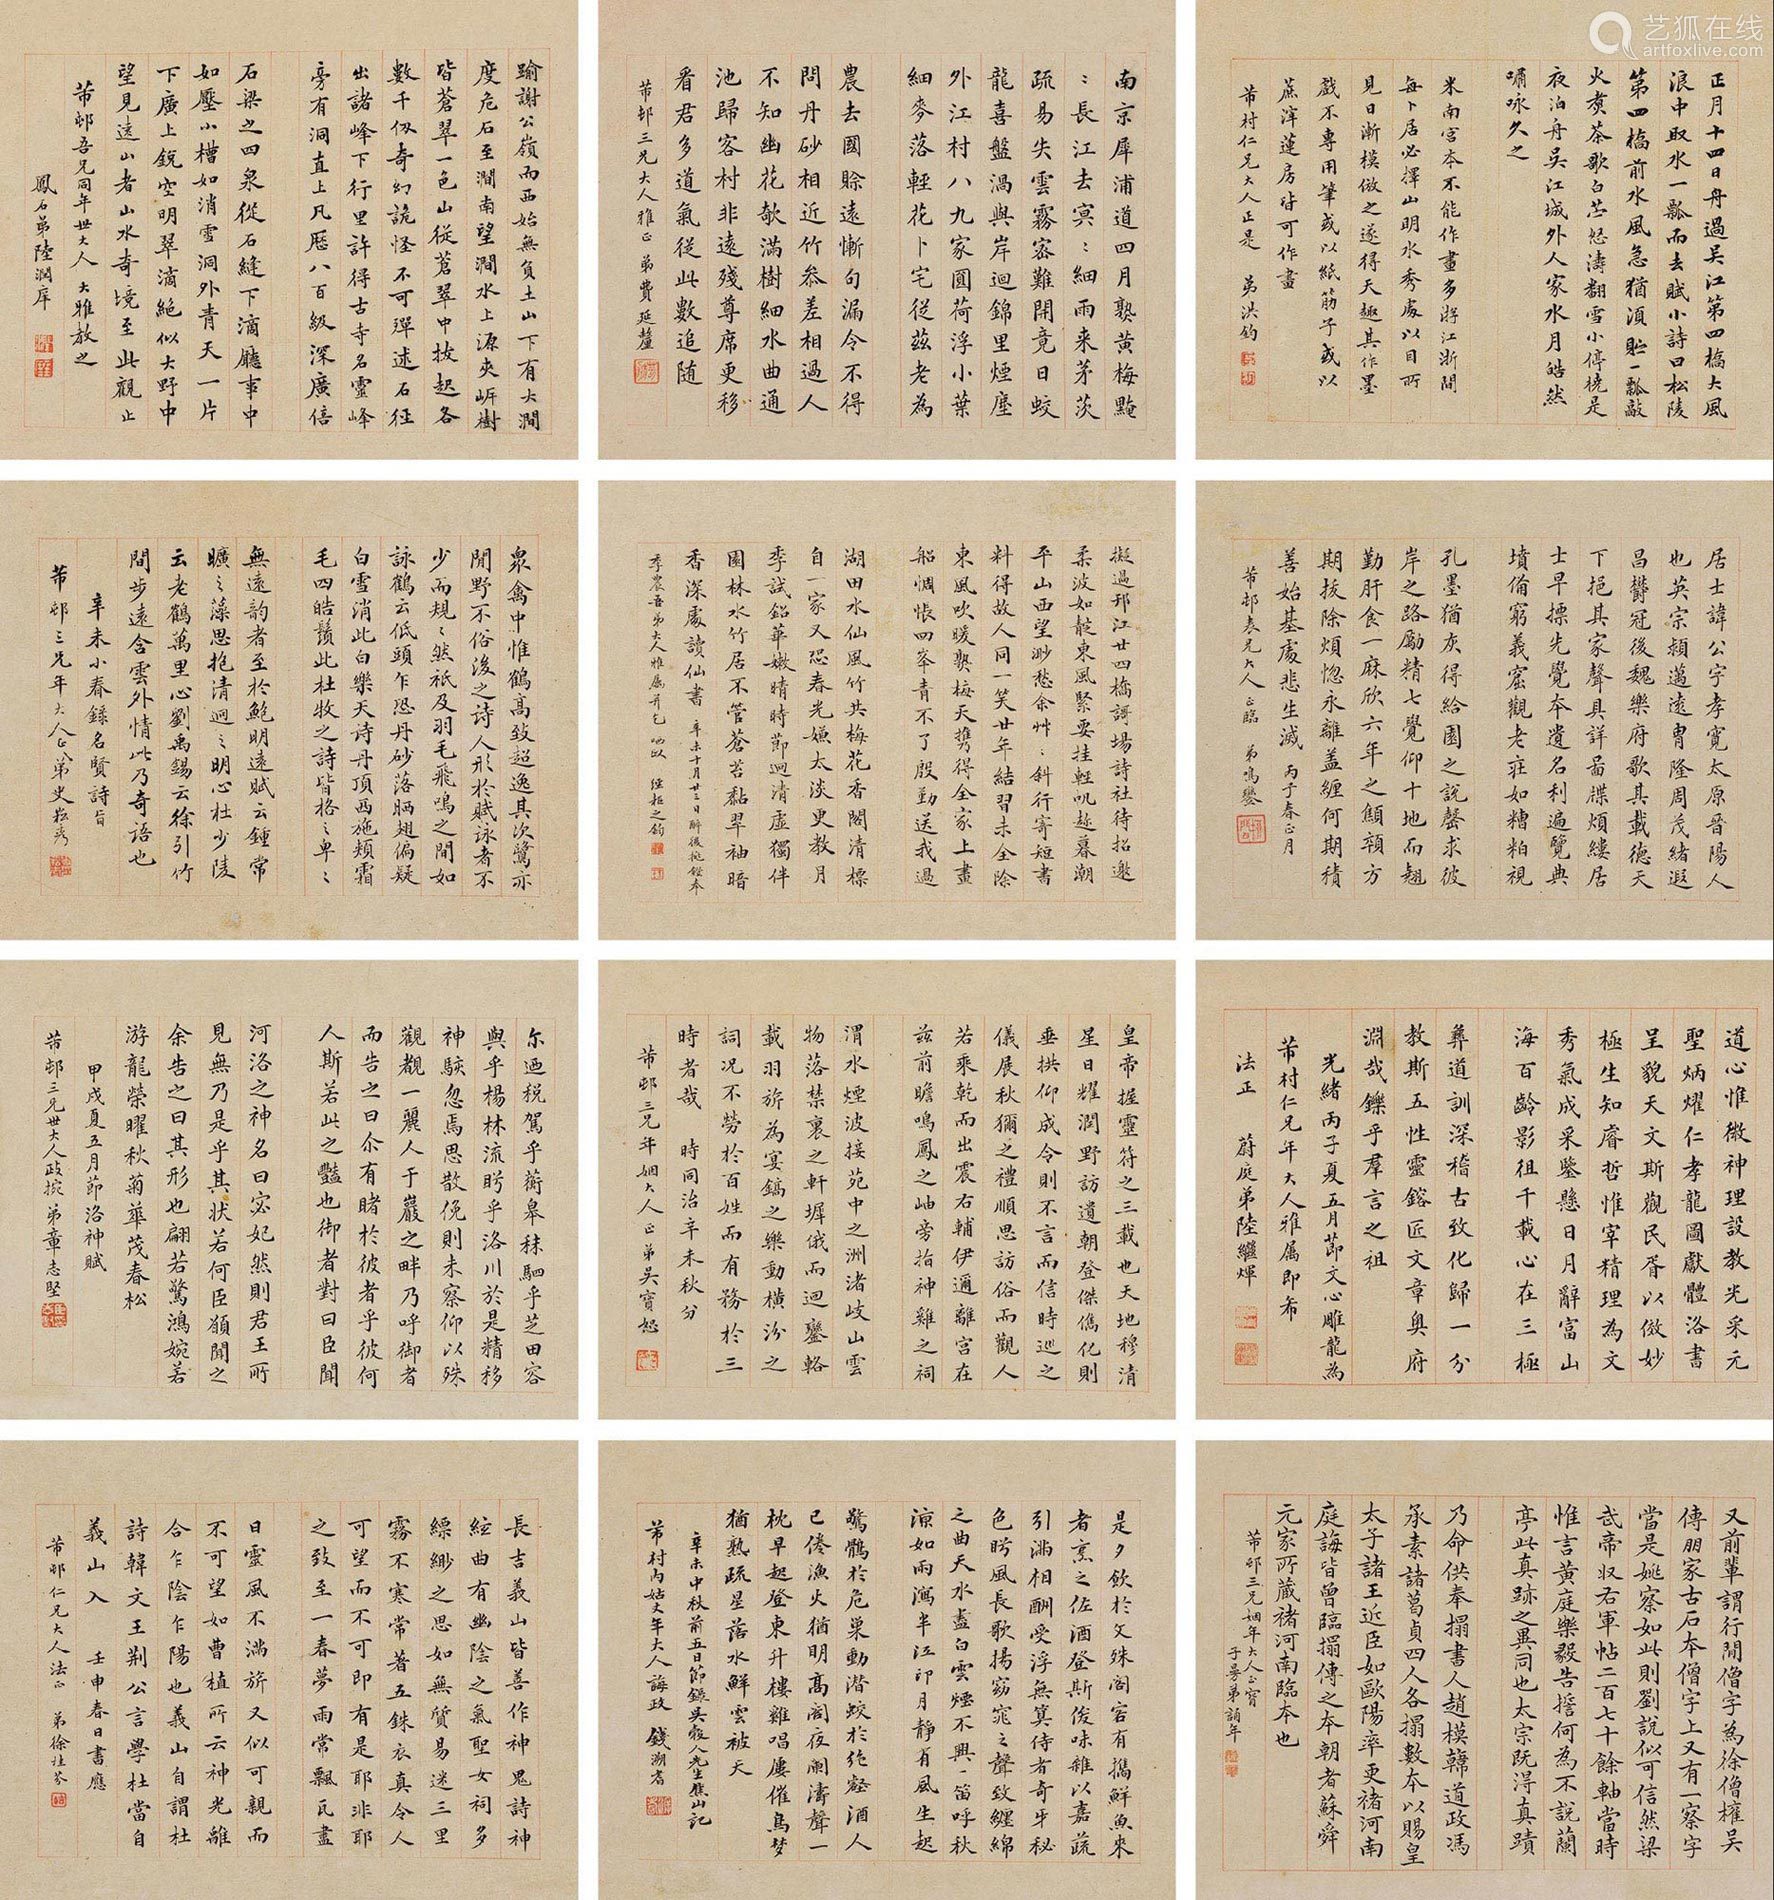 艺狐在线
artfoxlive.com
正月十四日舟過吴江第四橋大風
浪中取水一瓢而去賦小詩曰松陵
第四橋前水風急猶須貯一瓢敲
火煑茶歌白苎怒濤翻雪小停橈是
夜泊舟吴江城外人家水月皓然
嘯咏久之
米南宫本不能作畫多游江浙間
每卜居必擇山明水秀處以目所
見日漸模倣之遂得天趣其作墨
戲不專用筆或以紙筋子或以
蔗滓蓮房皆可作畫
芾村仁兄大人正是 弟洪鈞
南京犀浦道四月熟黄梅黤
〻長江去冥〻細雨来茅茨
疏易失雲霧密難開竟日蛟
龍喜盤渦與岸迴錦里煙塵
外江村八九家圓荷浮小葉
細麥落輕花卜宅從兹老為
農去國賒遠慚句漏令不得
問丹砂相近竹參差相過人
不知幽花欹滿樹細水曲通
池歸客村非遠殘尊席更移
看君多道氣從此數追随
芾邨三兄大人雅正弟費延釐
踰謝公嶺而西始無負土山下有大澗
度危石至澗南望澗水上源夾岍樹
皆蒼翠一色山從蒼翠中拔起各
數千仞奇幻詭怪不可殫述石徑
出諸峰下行里許得古寺名靈峰
旁有洞直上凡歷八百級深廣倍
石梁之四泉從石縫下滴廳事中
如壓小槽如消雪洞外青天一片
下廣上銳空明翠滴絶似大野中
望見遠山者山水奇境至此觀止
芾邨吾兄同年世大人 大雅教之
鳳石弟陸潤庠
居士諱公字孝寛太原晉陽人
也英宗頴邁遠胄隆周茂緒遐
昌欝冠後魏樂府歌其載德天
下挹其家聲具詳啚牒煩縷居
士早摽先覺本遺名利遍覽典
墳備窮義窟觀老莊如糟粕視
孔墨猶灰得給園之説罄求彼
岸之路勵精七覺仰十地而翹
勤肝食一麻欣六年之顦顇方
期拔除煩惚永離盖纏何期積
善始基處悲生滅 丙子春正月
芾邨表兄大人正臨 弟鳴鑾
擬過邗江廿四橋謌場詩社待招邀
柔波如靛東風緊要挂輕帆趁暮潮
平山西望渺愁余艸〻斜行寄短書
料得故人同一笑廿年結習未全除
東風吹暖熟梅天攜得全家上畫
船惆悵四峯青不了殷勤送我過
湖田水仙風竹共梅花香閣清標
自一家又恐春光嫌太淡更教月
季試鉛華嫩晴時節迥清虚獨伴
園林水竹居不管蒼苔黏翠袖暗
香深處讀仙書 辛未十月廿三日
季農吾弟大人雅屬
衆禽中惟鶴高致超逸其次鷺亦
閒野不俗後之詩人形於賦詠者不
少而規〻然秖及羽毛飛鳴之間如
詠鶴云低頭乍恐丹砂落晒翅偏疑
白雪消此白樂天詩丹頂西施頰霜
毛四皓鬚此杜牧之詩皆格〻卑〻
無遠韵者至於鮑明遠賦云鍾常
曠之藻思抱清迥之明心杜少陵
云老鶴萬里心劉禹錫云徐引竹
間步遠含雲外情此乃奇語也
辛未小春録名賢詩旨
芾邨三兄年大人正弟史崧秀
道心惟微神理設教光采元
聖炳燿仁孝龍圖獻體洛書
呈貌天文斯觀民胥以倣妙
極生知睿哲惟宰精理為文
秀氣成采鑒懸日月辭富山
海百齡影徂千載心在三極
彝道訓深稽古致化歸一分
教斯五性靈鎔匠文章奥府
淵哉鑠乎羣言之祖
光緒丙子夏五月節文心雕龍為
芾村仁兄年大人雅属即希
法正 蔚庭弟陸繼煇
皇帝握靈符之三載也天地穆清
星日耀潤野訪遺朝登傑儁化則
垂拱仰成令則不言而信時巡之
儀展秋獮之禮順思訪俗而觀人
若乘乾而出震右輔伊邇離宫在
兹前瞻鳴鳳之岫旁指神雞之祠
渭水煙波接苑中之洲渚岐山雲
物落禁裏之軒墀俄而迴鑾輅
載羽旂為宴鎬之樂動横汾之
詞况不勞於百姓而有務於三
時者哉 時同治辛未秋分
芾邨三兄年姻大人正弟吴寳恕
尔迺税駕乎蘅皋秣駟乎芝田容
與乎楊林流眄乎洛川於是精移
神駭忽焉思散俛則未察仰以殊
觀覩一麗人于巖之畔乃呼御者
而告之曰尒有睹於彼者乎彼何
人斯若此之豔也御者對曰臣聞
河洛之神名曰宓妃然則君王所
見無乃是乎其狀若何臣願聞之
余告之曰其形也翩若驚鴻婉若
游龍榮曜秋菊華茂春松
甲戌夏五月節洛神賦
芾邨三兄世大人政捥弟章志堅
又前輩謂行間僧字為徐僧權吴
傳朋家古石本僧字上又有一察字
當是姚察如此則劉説似可信然梁
武帝収右軍帖二百七十餘軸當時
惟言黄庭樂毅告誓何為不説蘭
亭此真跡之異同也太宗既得真蹟
乃命供奉搨書人趙模韓道政馮
承素諸葛貞四人各搨數本以賜皇
太子諸王近臣如歐陽率更褚河南
庭誨皆曾臨搨傳之本朝者蘇舜
元家所藏褚河南臨本也
芾邨三兄姻年大人正寳
子曼弟誦年
是夕飲於文殊閣客有攜鮮魚來
者烹之佐酒登斯俊味雜以嘉蔬
引滿相酬受浮無筭侍者奇牙秘
色眄風長歌揚窈窕之聲致纏綿
之曲天水盡白雲煙不興一笛呼秋
涼如雨瀉半江印月靜有風生起
驚鶻於危巢動潜蛟於絶壑酒人
已倦漁火猶明髙閣夜闌濤聲一
枕早起登東升樓雞唱屢催烏梦
猶熟疏星落水鮮雲被天
辛未中秋前五日節錄吴穀人先生焦山記
芾村内姑丈年大人誨政 錢溯耆
長吉義山皆善作神鬼詩神
絃曲有幽陰之氣聖女祠多
縹緲之思如無質易迷三里
霧不寒常著五銖衣真令人
可望而不可即有是耶非耶
之致至一春夢雨常飄瓦盡
日靈風不滿旂又似可親而
不可望如曹植所云神光離
合乍陰乍陽也義山自謂杜
詩韓文王荆公言學杜當自
義山入 壬申春日書應
芾邨仁兄大人法正 弟徐